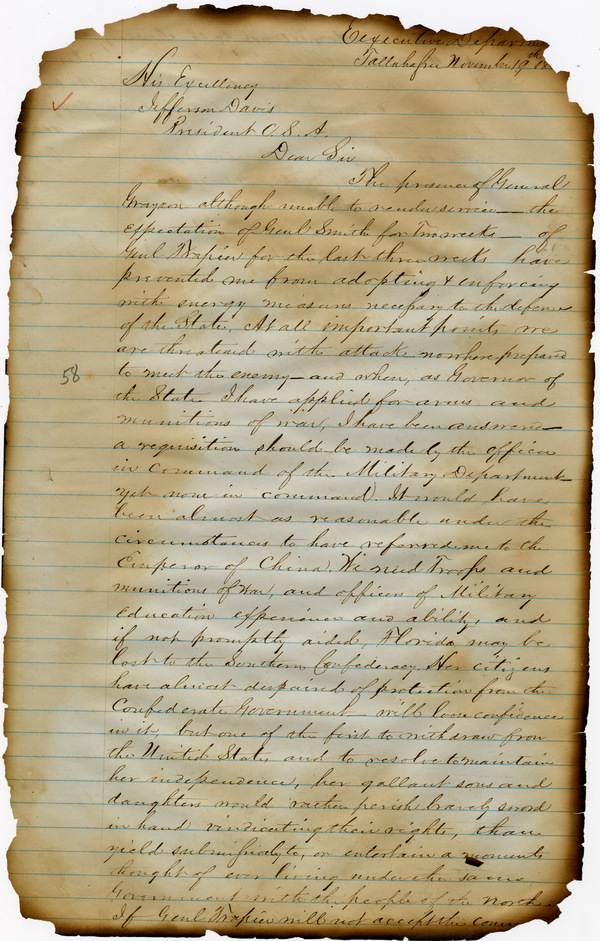 Executive Departm
Tallahassee November 19th
His Excellency
Jefferson Davis
President C. S. A.
Dear Sir
The presence of General
Grayson although unable to render service — the
expectation of Genl Smith for two weeks — of
Genl Trapier for the last three weeks have
prevented me from adopting & enforcing
with energy measures necessary to the defence
of the State. At all important points we
are threatened with attack nowhere prepared
to meet the enemy — and when, as Governor of
the State I have applied for arms and
munitions of war, I have been answered —
a requisition should be made by the officer
in command of the Military Department —
yet none in command). It would have
been almost as reasonable under the
circumstances to have referred me to the
Emperor of China. We need Troops and
munitions of War, and officers of Military
education experience and ability, and
if not promptly aided, Florida may be
lost to the Southern Confederacy. Her citizens
have almost despaired of protection from the
Confederate Government — will lose confidence
in it, but one of the first to withdraw from
the United States and to resolve to maintain
her independence, her gallant sons and
daughters would rather perish bravely sword
in hand vindicating their rights, than
yield submissively, or entertain a moments
thought of ever living under the same
Government with the people of the North
If Genl Trapier will not accept the com
58